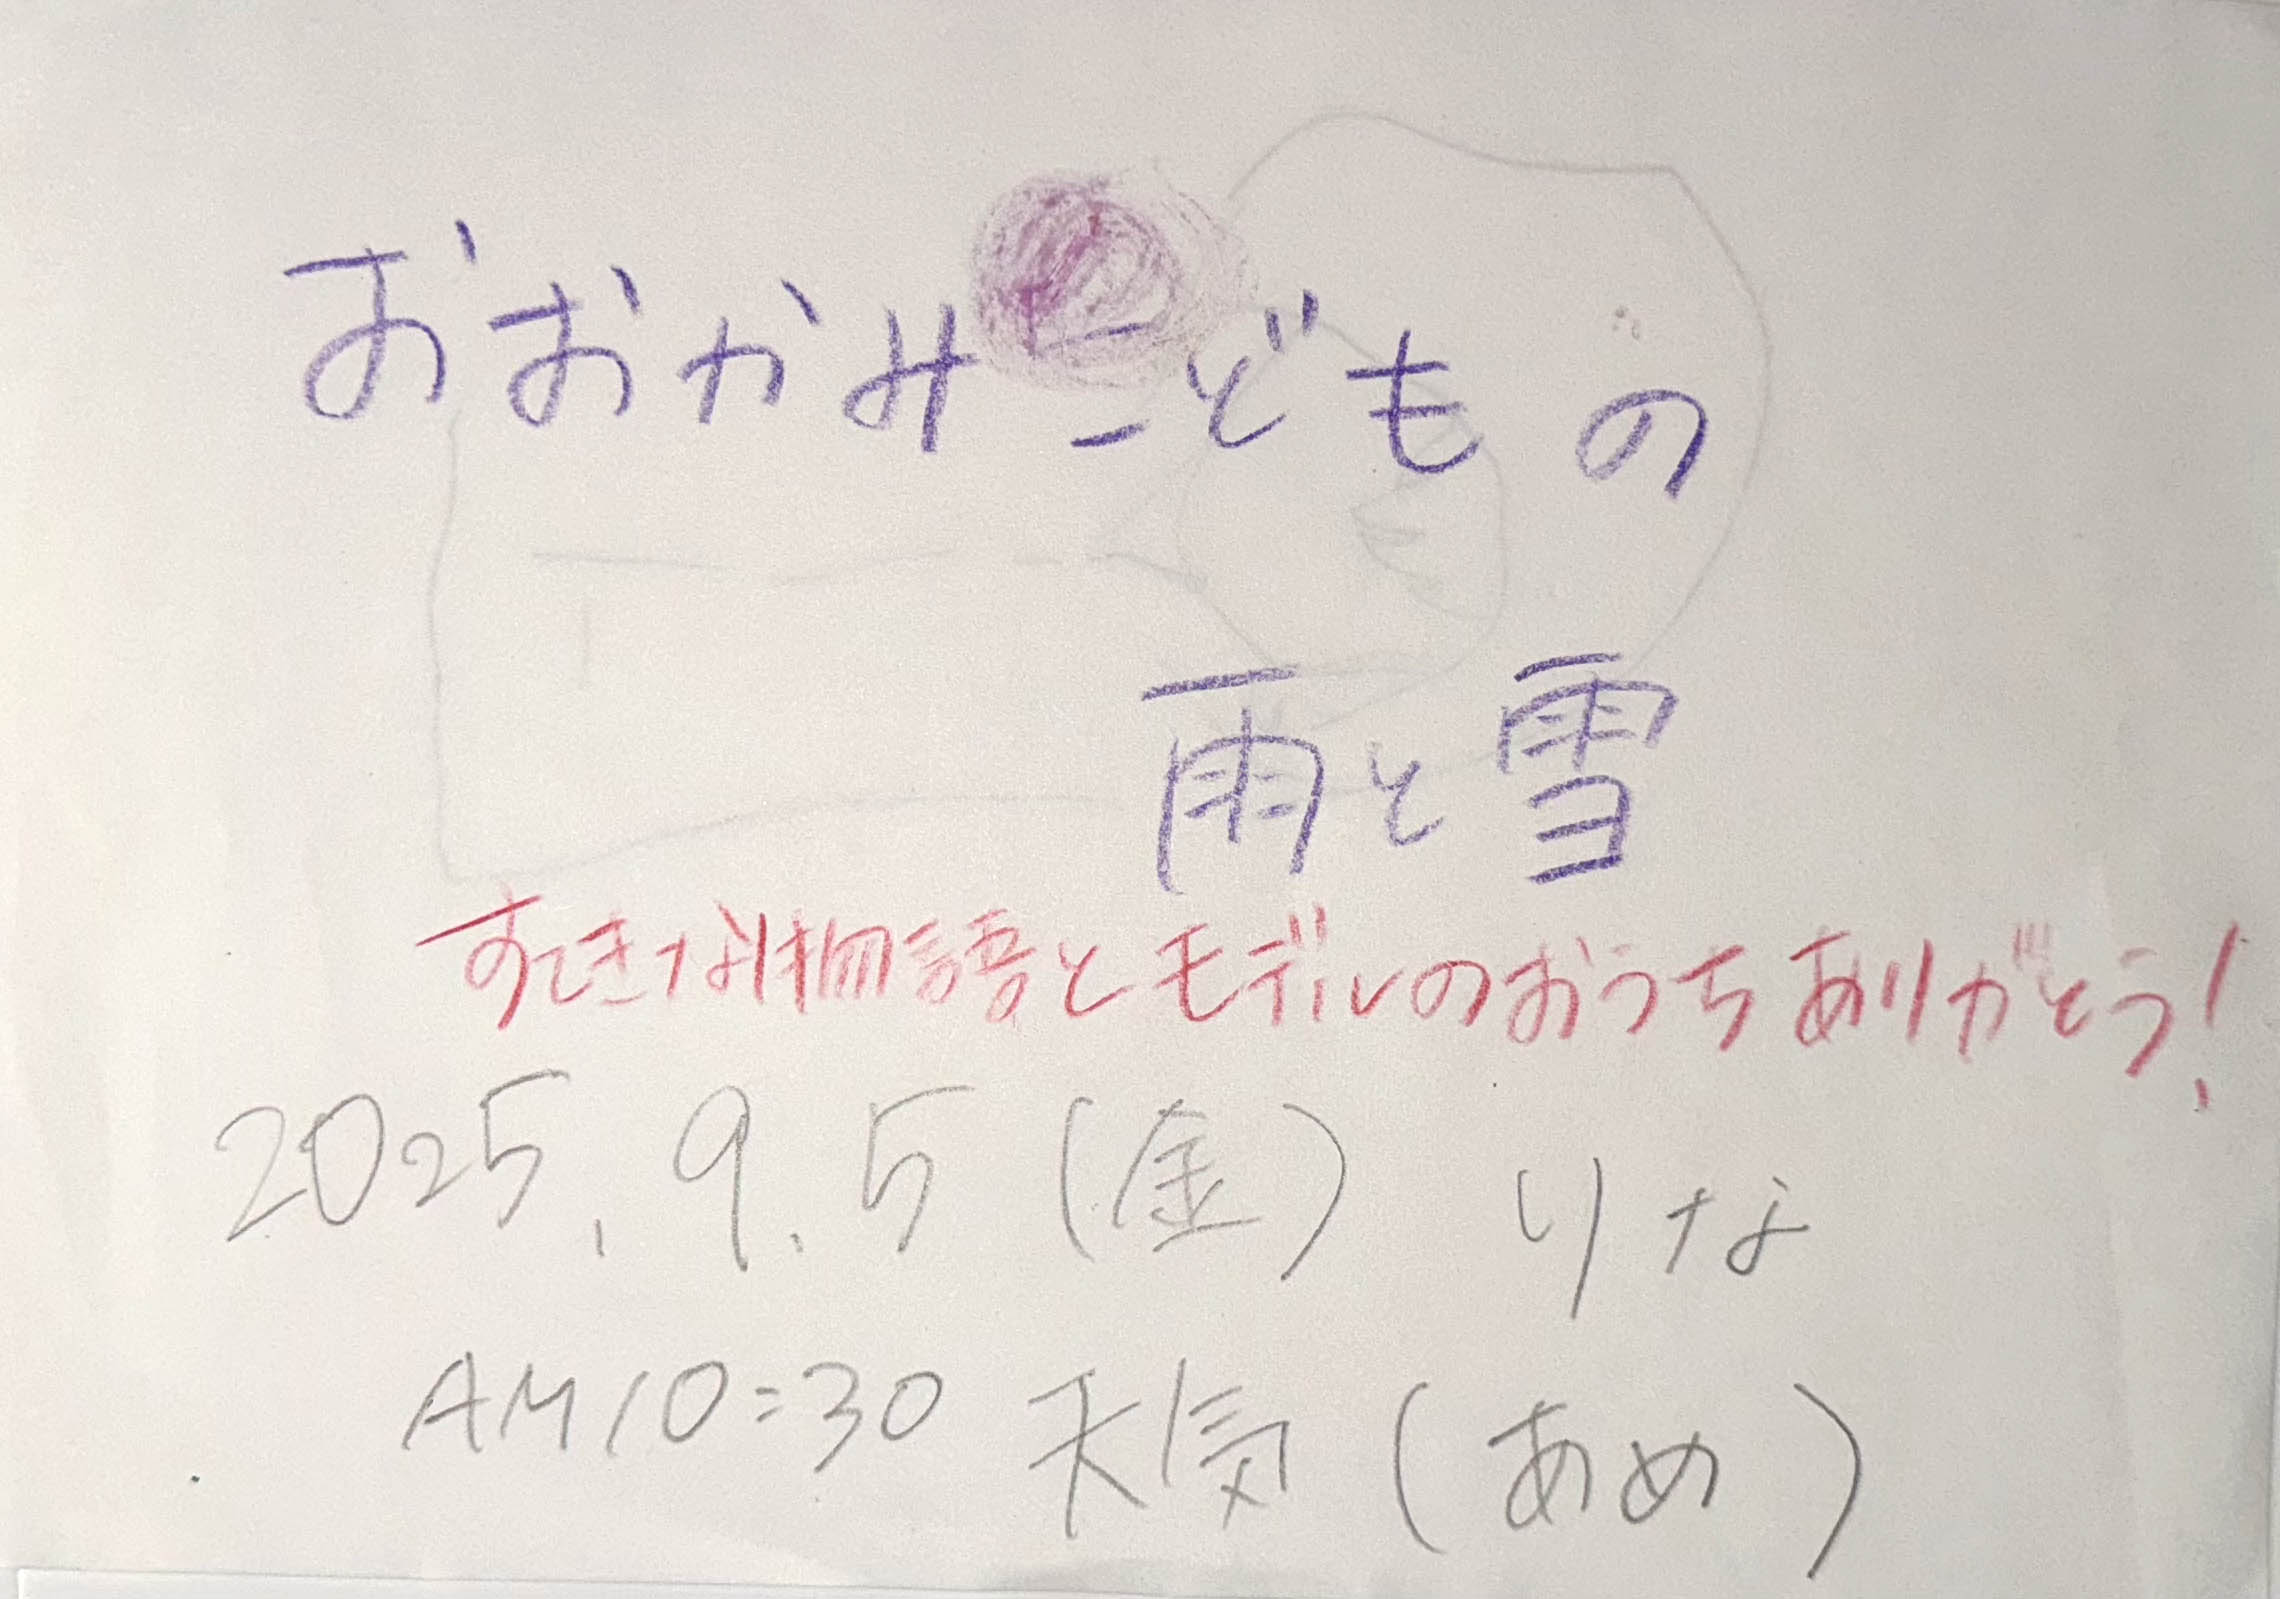 おおかみこどもの
雨と雪
すてきな物語とモデルのおうちありがとう!
2025.9.5(金) りな
AM10:30 天気(あめ)